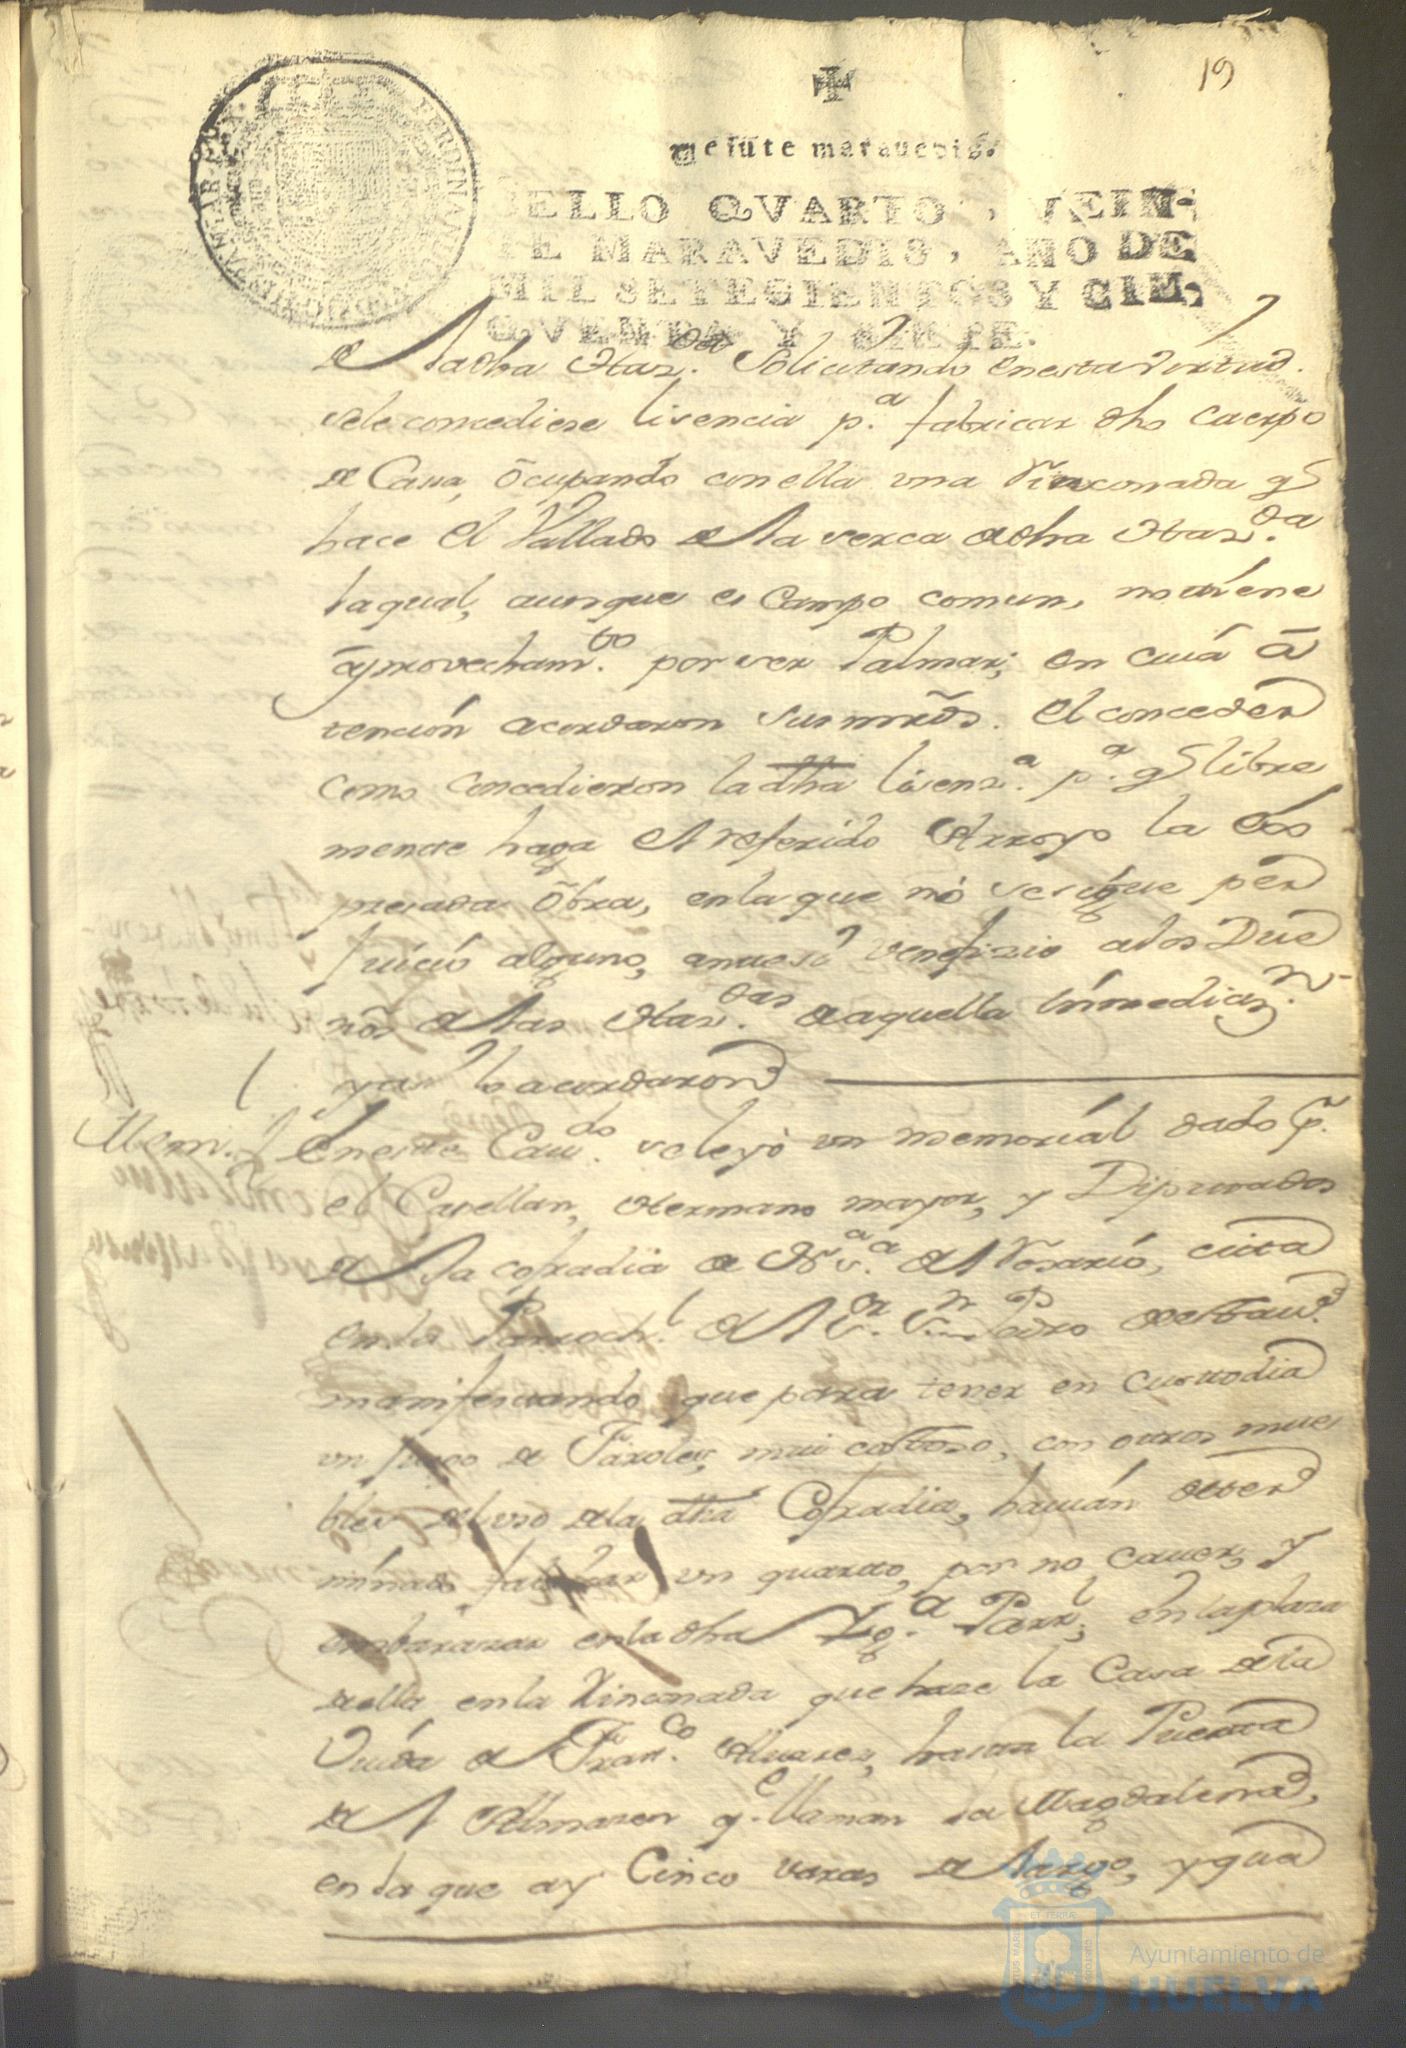 19
Veinte maravedis.
SELLO QVARTO, VEIN-
TE MARAVEDIS, AÑO DE
MIL SETECIENTOS Y CIN-
QVENTA Y SIETE.
de la dha Haz.da Solicitando en esta virtud.
se le concediese lisencia p.a fabricar dho Cuerpo
de Casa, ocupando con ella una Rinconada q
hace el Vallado de la serca de dha Haz.da
la qual, aunque es Campo comun, no tiene
aprovecham.to por ser Palmar, en cuiá á
tención acordaron sus mrds. el conceder
como concedieron la dha lisenz.a p.a q libre
mente haga el referido Arroyo la es
presada óbra, en la que nó se sigue per
juicio alguno, antes si venefizio a los Due
nõs de las Haz.das de aquella inmediaz.n
y asi lo acordaron
Mem.l En este Cau.do se leyó un memoriál dado p.r
el Capellan, Hermano mayor, y Diputados
de la cofradia de N.a S.a del Rosario, cita
en la Parroch.l del S.or S.n Pedro de esta
manifestando que para tener en custodia
un juego de Faroles, mui costoso, con otros mue
bles del uso de la dha Cofradia, havián deter
minado fabricar un quarto, por no caver, y
embarazar en la dha Yg.a Parr.l en la plaza
de ella, en la Rinconada que haze la Casa de la
Viuda de Fran.co Alvarez, hasta la Puerta
del Almazen q.e llaman la Magdalena,
en la que ay Cinco varas de largo, y qua
ET TERRÆ
Ayuntamiento de
HUELVA